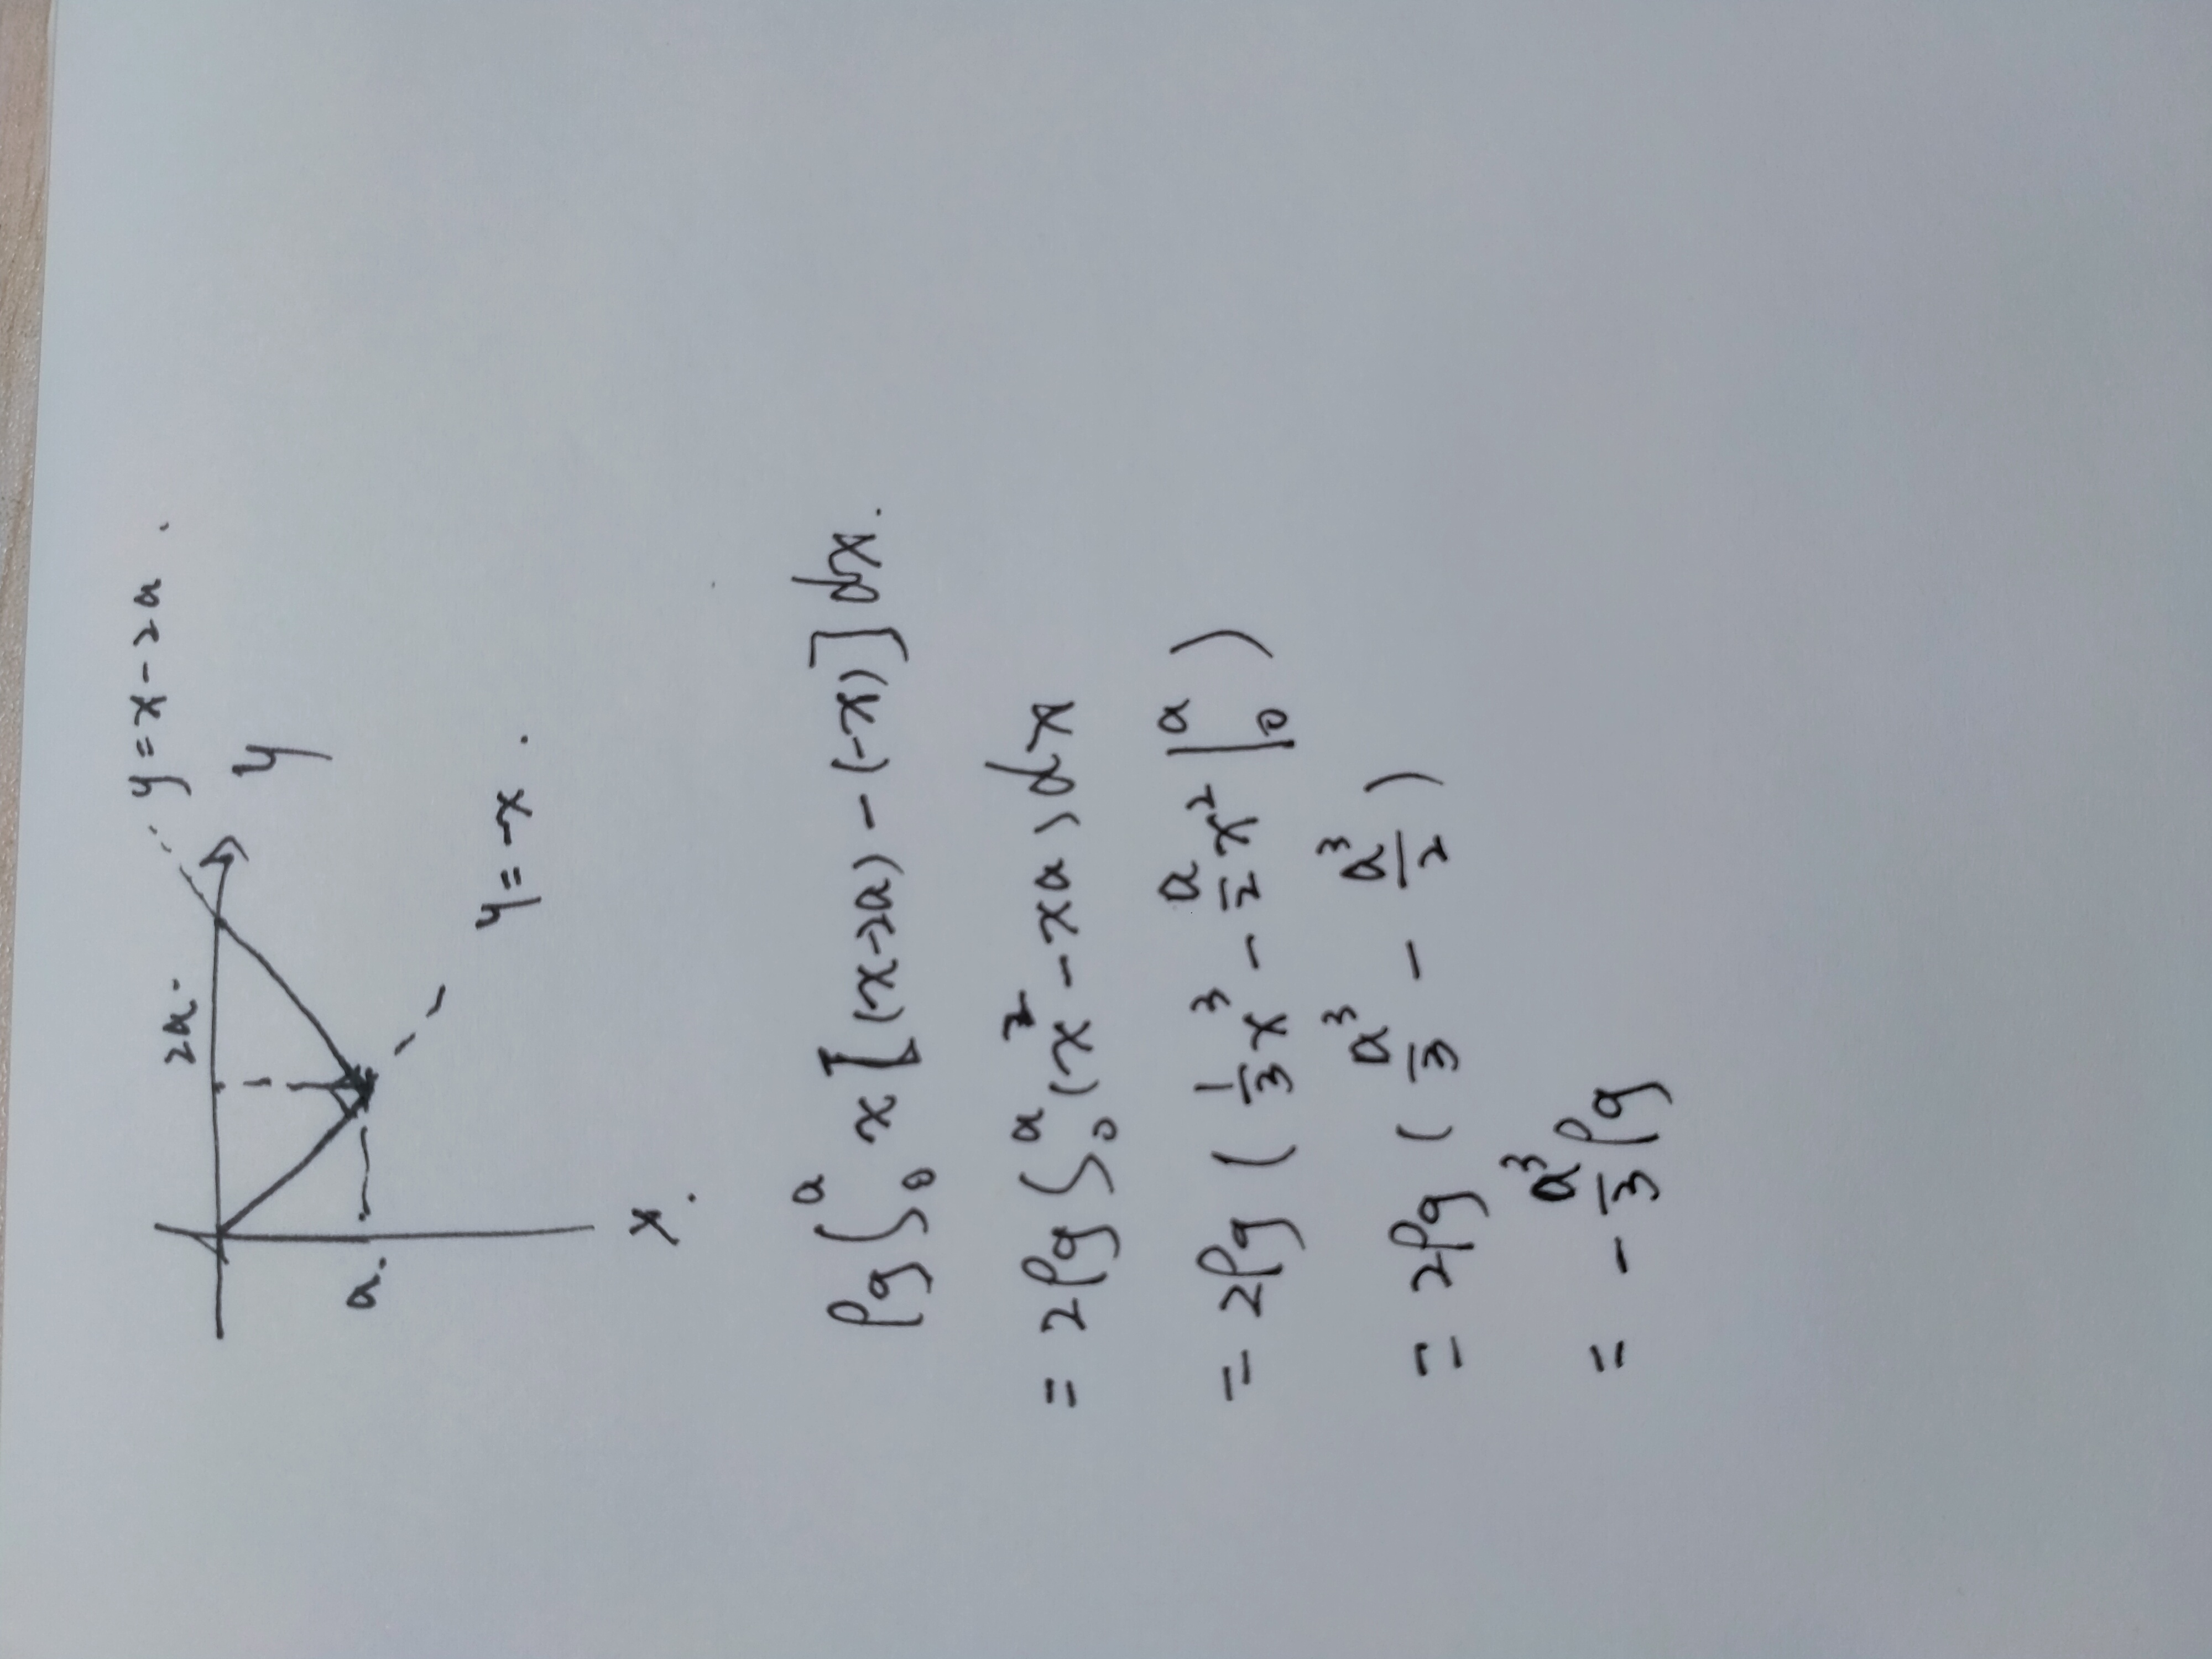 y = x - 2a.
2a.
y
a.
y = -x.
x.
ρg ∫₀ᵃ x [(x-2a) - (-x)] dx.
= 2ρg ∫₀ᵃ (x² - xa) dx
= 2ρg ( 1/3 x³ - a/2 x² |₀ᵃ )
= 2ρg ( a³/3 - a³/2 )
= - a³/3 ρg